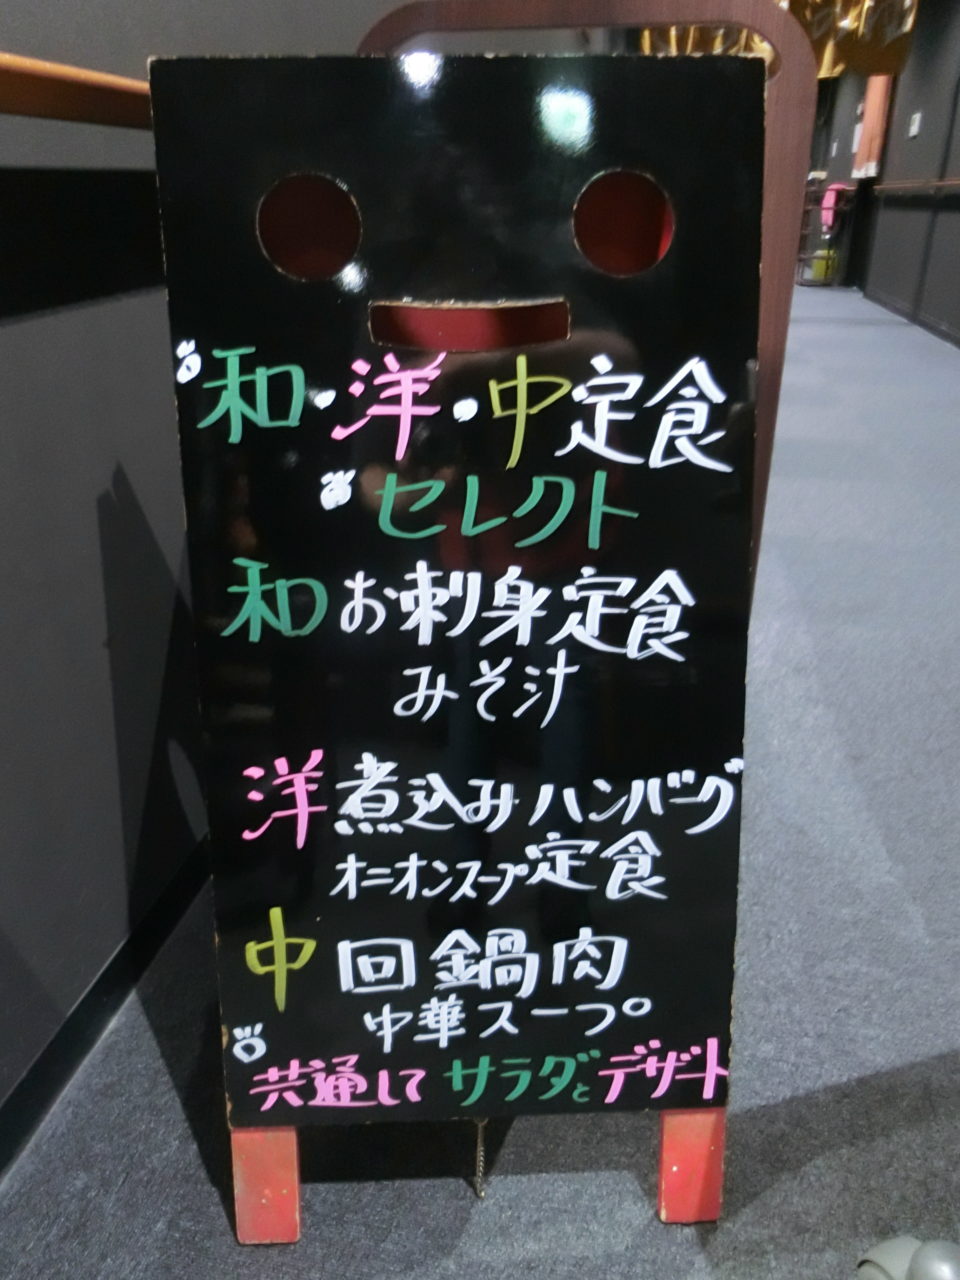 和・洋・中定食
セレクト
和 お刺身定食
みそ汁
洋 煮込みハンバーグ
オニオンスープ定食
中 回鍋肉
中華スープ
共通して サラダとデザート